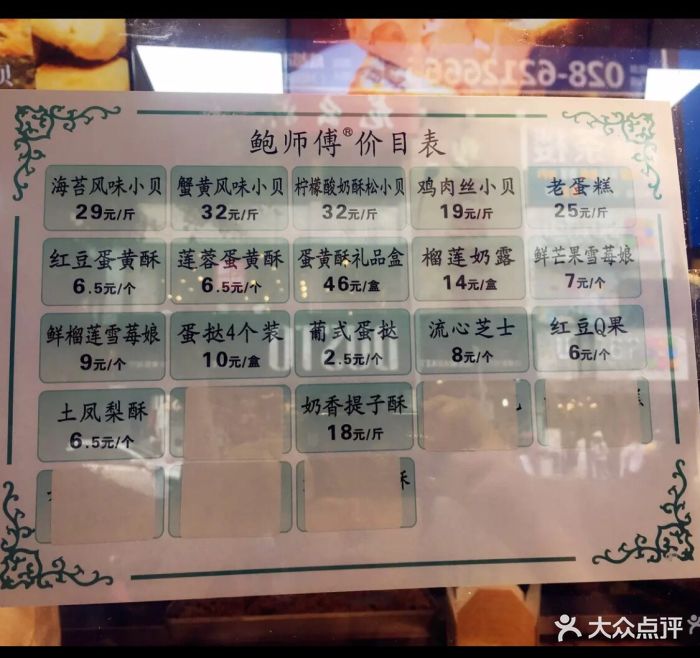 028-6212666
鲍师傅®价目表
海苔风味小贝 蟹黄风味小贝 柠檬酸奶酥松小贝 鸡肉丝小贝 老蛋糕
29元/斤 32元/斤 32元/斤 19元/斤 25元/斤
红豆蛋黄酥 莲蓉蛋黄酥 蛋黄酥礼品盒 榴莲奶露 鲜芒果雪莓娘
6.5元/个 6.5元/个 46元/盒 14元/盒 7元/个
鲜榴莲雪莓娘 蛋挞4个装 葡式蛋挞 流心芝士 红豆Q果
9元/个 10元/盒 2.5元/个 8元/个 6元/个
土凤梨酥 奶香提子酥
6.5元/个 18元/斤
酥
大众点评